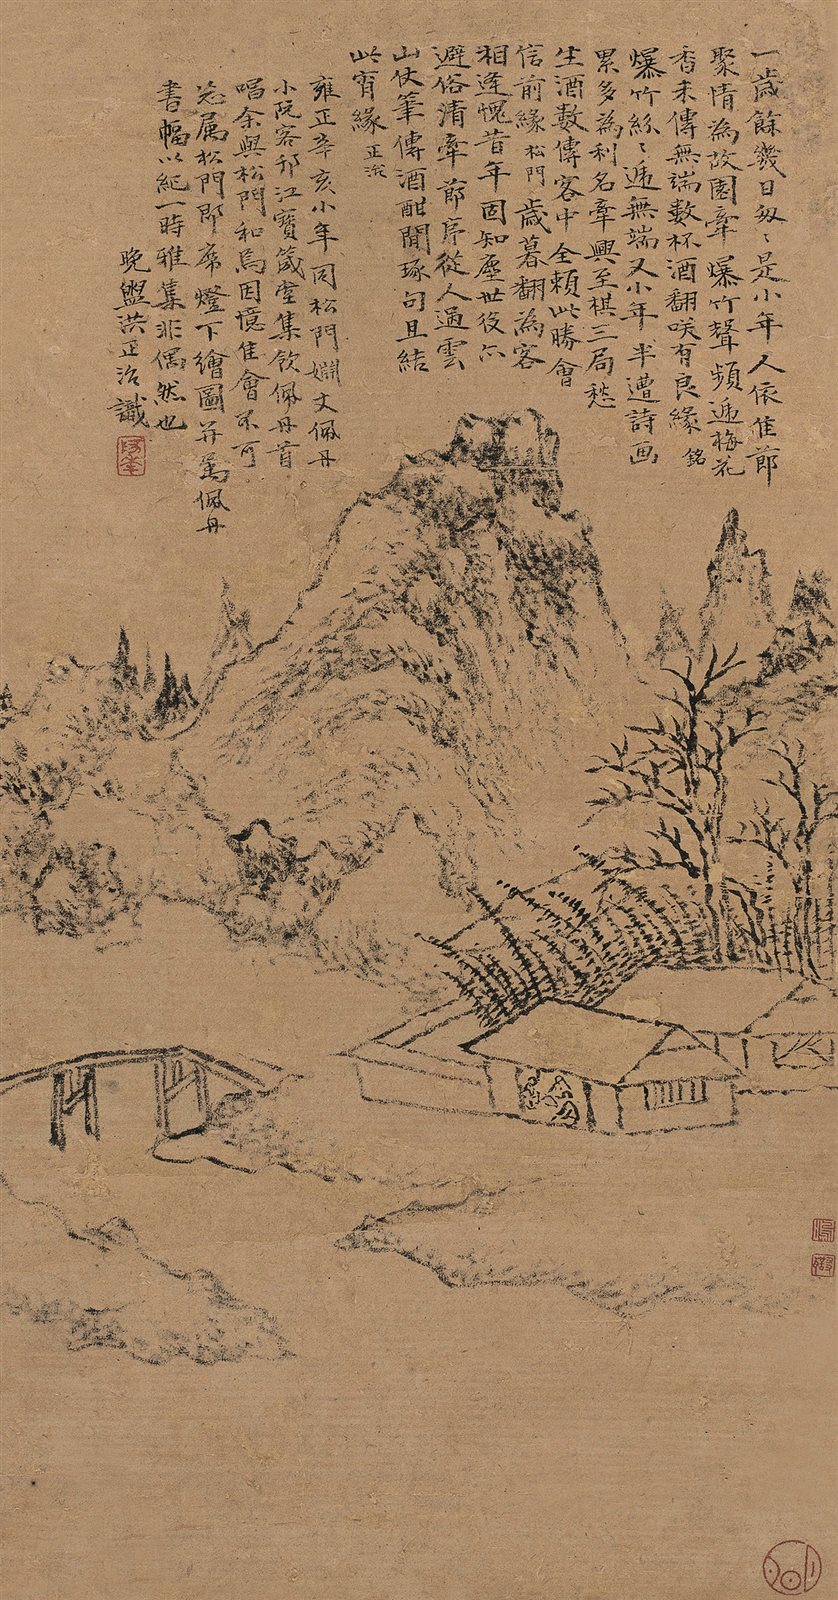 一歲餘幾日匆〻是小年人依佳節
聚情為故園牽爆竹聲頻遞梅花
香未傳無端數杯酒翻咲有良緣銘
爆竹絲〻遞無端又小年半遭詩画
累多為利名牽興至棋三局愁
生酒數傳客中全賴此勝會
信前緣松門歲暮翻為客
相逢愧昔年固知塵世役六
避俗清牽節序從人過雲
山仗筆傳酒酣聞琢句且結
此宵緣正治
雍正辛亥小年同松門嫻丈佩丹
小阮客邗江寶箴堂集飲佩丹首
唱余與松門和焉因憶佳會不可
忘属松門即席燈下繪圖并為佩丹
書幅以紀一時雅集非偶然也
晚盤洪正治識